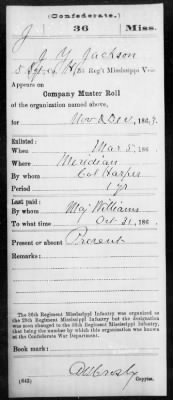 (Confederate.)
J 36 Miss.
J Y Jackson
5 Sgt, Co H, 36 Reg't Mississippi Vols.
Appears on
Company Muster Roll
of the organization named above,
for Nov & Dec, 186
Enlisted:
When Mar 5, 186
Where Meridian
By whom Col Harper
Period 1 yr
Last paid:
By whom Maj Williams
To what time Oct 31, 186
Present or absent Present
Remarks:
The 36th Regiment Mississippi Infantry was organized as the
Regiment Mississippi Infantry but the designation
was soon changed to the 36th Mississippi Infantry,
that being the number by which this organization was known
at the Confederate War Department.
Book mark:
Crosby
(642) Copyist.